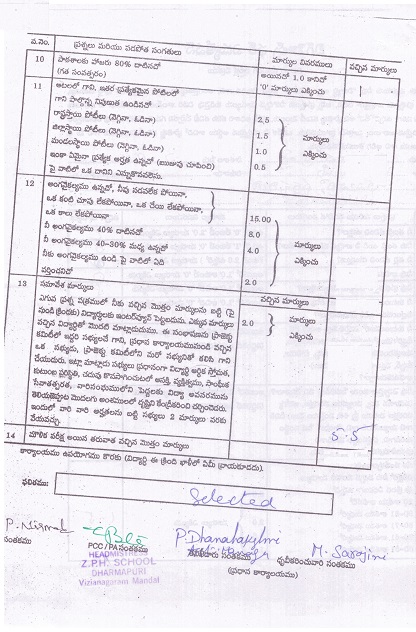 వ.నెం. ప్రశ్నలు మరియు వడపోత సంగతులు మార్కుల వివరములు వచ్చిన మార్కులు
10 పాఠశాలకు హాజరు 80% దాటినదో అయినదో 1.0 కానిదో
(గత సంవత్సరం) '0' మార్కులు ఎక్కించు
11 ఆటలలో గాని, ఇతర ప్రత్యేకమైన పోటీలలో
గాని పాల్గొన్న నిపుణత ఉందినదో
రాష్ట్రస్థాయి పోటీలు (నెగ్గినా, ఓడినా) 2.5
జిల్లాస్థాయి పోటీలు (నెగ్గినా, ఓడినా) 1.5 మార్కులు
మండలస్థాయి పోటీలు (నెగ్గినా, ఓడినా) 1.0 ఎక్కించు
ఇంకా ఏమైనా ప్రత్యేక అర్హత ఉన్నదో (ఋజువు చూపించి) 0.5
పై వాటిలో ఒక దానిని ఎన్నుకొనవలెను.
12 అంగవైకల్యము ఉన్నదో, నీవు నడవలేక పోయినా,
ఒక కంటి చూపు లేకపోయినా, ఒక చేయి లేకపోయినా,
ఒక కాలు లేకపోయినా 15.00
నీ అంగవైకల్యము 40% దాటినదో 8.0 మార్కులు
నీ అంగవైకల్యము 40-30% మధ్య ఉన్నదో 4.0 ఎక్కించు
నీకు అంగవైకల్యము ఉండి పై వాటిలో ఏది
వర్తించనిదో 2.0
13 సమావేశ మార్కులు వచ్చిన మార్కులు
ఎగువ ప్రశ్న పత్రములో నీకు వచ్చిన మొత్తం మార్కులను బట్టి (పై 2.0 మార్కులు
నుండి క్రిందకు) విద్యార్థులకు ఇంటర్వ్యూస్ పెట్టబడును. ఎక్కువ మార్కులు ఎక్కించు
వచ్చిన విద్యార్థితో మొదటి మాట్లాడుదుము. ఈ సంభాషణను ప్రాజెక్టు
కమిటీలో ఇద్దరి సభ్యులనే గాని, ప్రధాన కార్యాలయమునుండి వచ్చిన
ఒక సభ్యుడు, ప్రాజెక్టు కమిటీలోని మరో సభ్యునితో కలిసి గాని
చేయుదురు. ఇట్లా మాట్లాడు సభ్యులు ప్రధానంగా విద్యార్థి ఆర్థిక స్తోమత,
కుటుంబ పరిస్థితి, చదువు కొనసాగించుటలో ఆసక్తి, వ్యక్తిత్వము, సాంఘిక
సేవాతత్పరత, వారిసంఘములోని పెద్దలకు విద్యా అవసరమును
తెలియజెప్పుట మొదలుగు అంశములలో దృష్టిని కేంద్రీకరించి చర్చించెదరు.
ఇందులో వారి వారి అర్హతలను బట్టి సభ్యులు 2 మార్కులు వరకు
వేయవచ్చు.
14 మౌఖిక పరీక్ష అయిన తరువాత వచ్చిన మొత్తం మార్కులు 5.5
కార్యాలయము ఉపయోగము కొరకు (విద్యార్థి ఈ క్రింది ఖాళీలో ఏమీ వ్రాయకూడదు).
ఫలితము: Selected
P. Nirmal P. Dhanalakshmi M. Sarojini
సంతకము PCC / PA సంతకము ధృవీకరించువారి సంతకము
(ప్రధాన కార్యాలయము)
HEADMISTRESS
Z.P.H. SCHOOL
DHARMAPURI
Vizianagaram Mandal